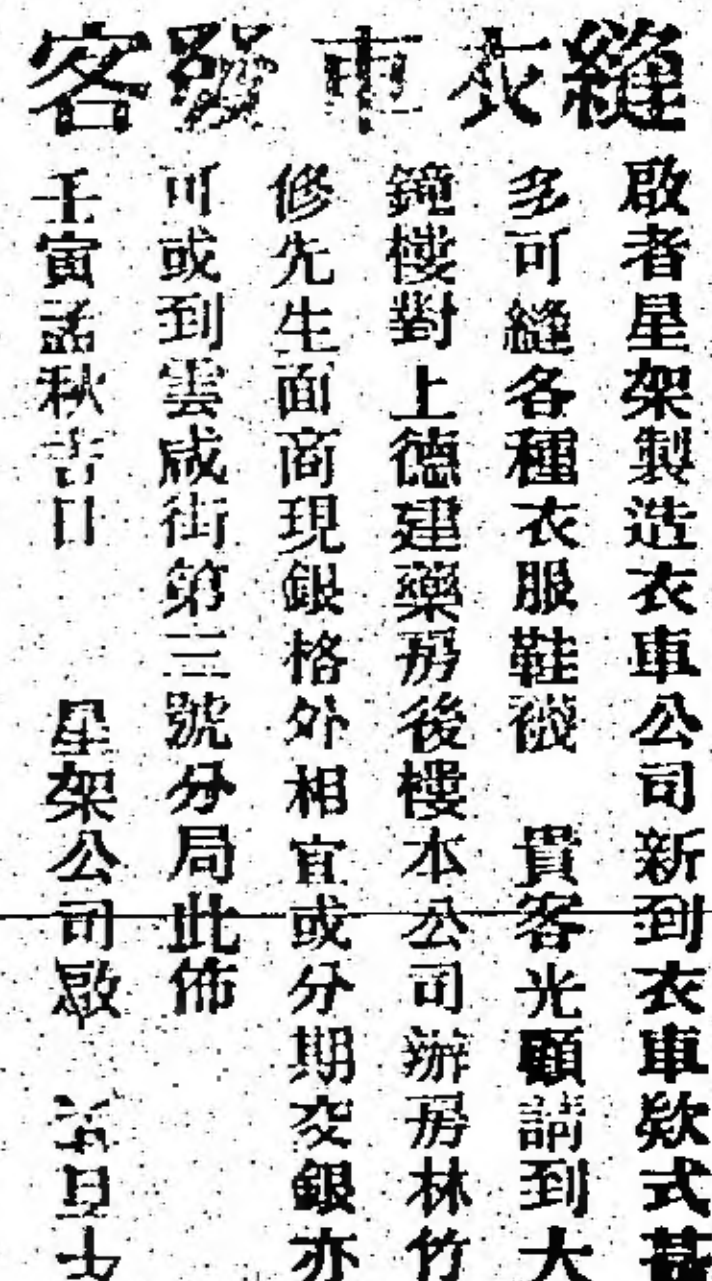 縫衣車發客
啟者星架製造衣車公司新到衣車欵式甚
多可縫各種衣服鞋襪　貴客光顧請到大
鐘樓對上德建藥房後樓本公司辦房林竹
修先生面商現銀格外相宜或分期交銀亦
可或到雲咸街第三號分局此佈
壬寅孟秋吉日　星架公司啟